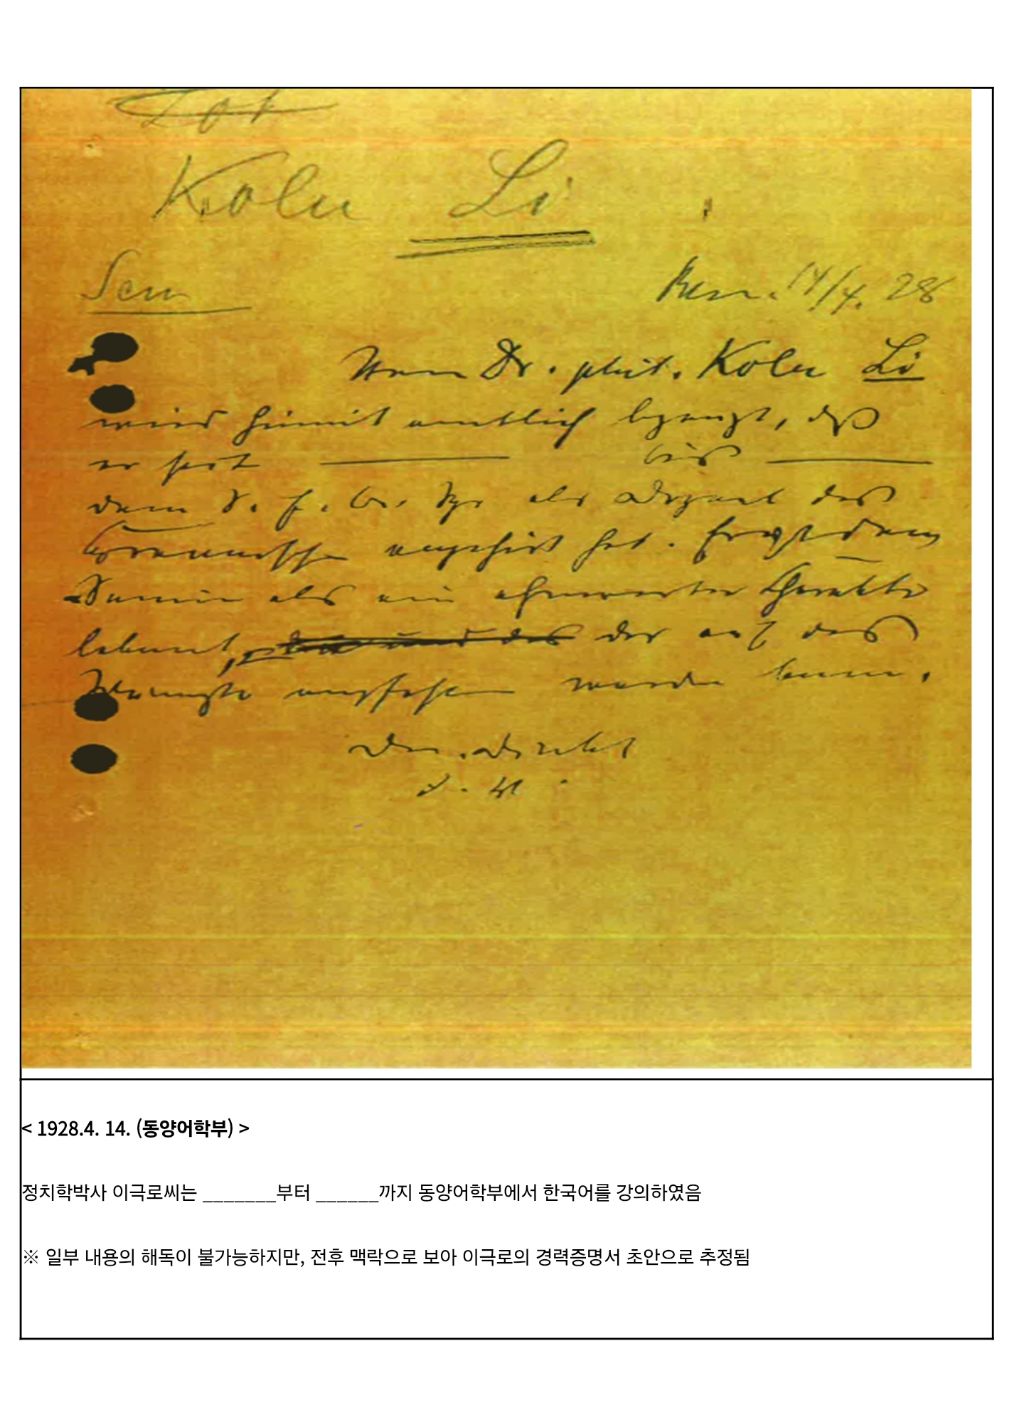 Kolu Li
Sem
14/4. 28
Herrn Dr. phil. Kolu Li
wird hiermit amtlich bezeugt, daß
er seit ———— bis ————
dem S. f. O. Spr als Dozent des
Koreanischen angehört hat. Er ist dem
Seminar als ein ehrenwerter Charakter
bekannt, der auf das
Wärmste empfohlen werden kann.
Der Direktor
< 1928.4. 14. (동양어학부) >
정치학박사 이극로씨는 _______부터 ______까지 동양어학부에서 한국어를 강의하였음
※ 일부 내용의 해독이 불가능하지만, 전후 맥락으로 보아 이극로의 경력증명서 초안으로 추정됨